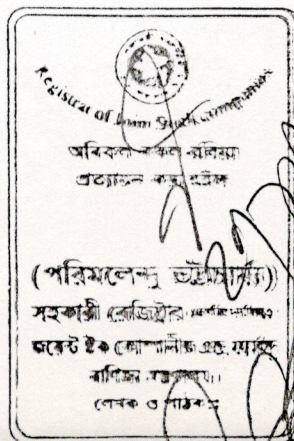 Registrar of Joint Stock Companies
অবিকল নকল বলিয়া
প্রত্যায়ন করা হইল
(পরিমলেন্দু ভট্টাচার্য্য)
সহকারী রেজিষ্ট্রার
জয়েন্ট ষ্টক কোম্পানীজ এন্ড
বাণিজ্য মন্ত্রণালয়।
লেখক ও পাঠক